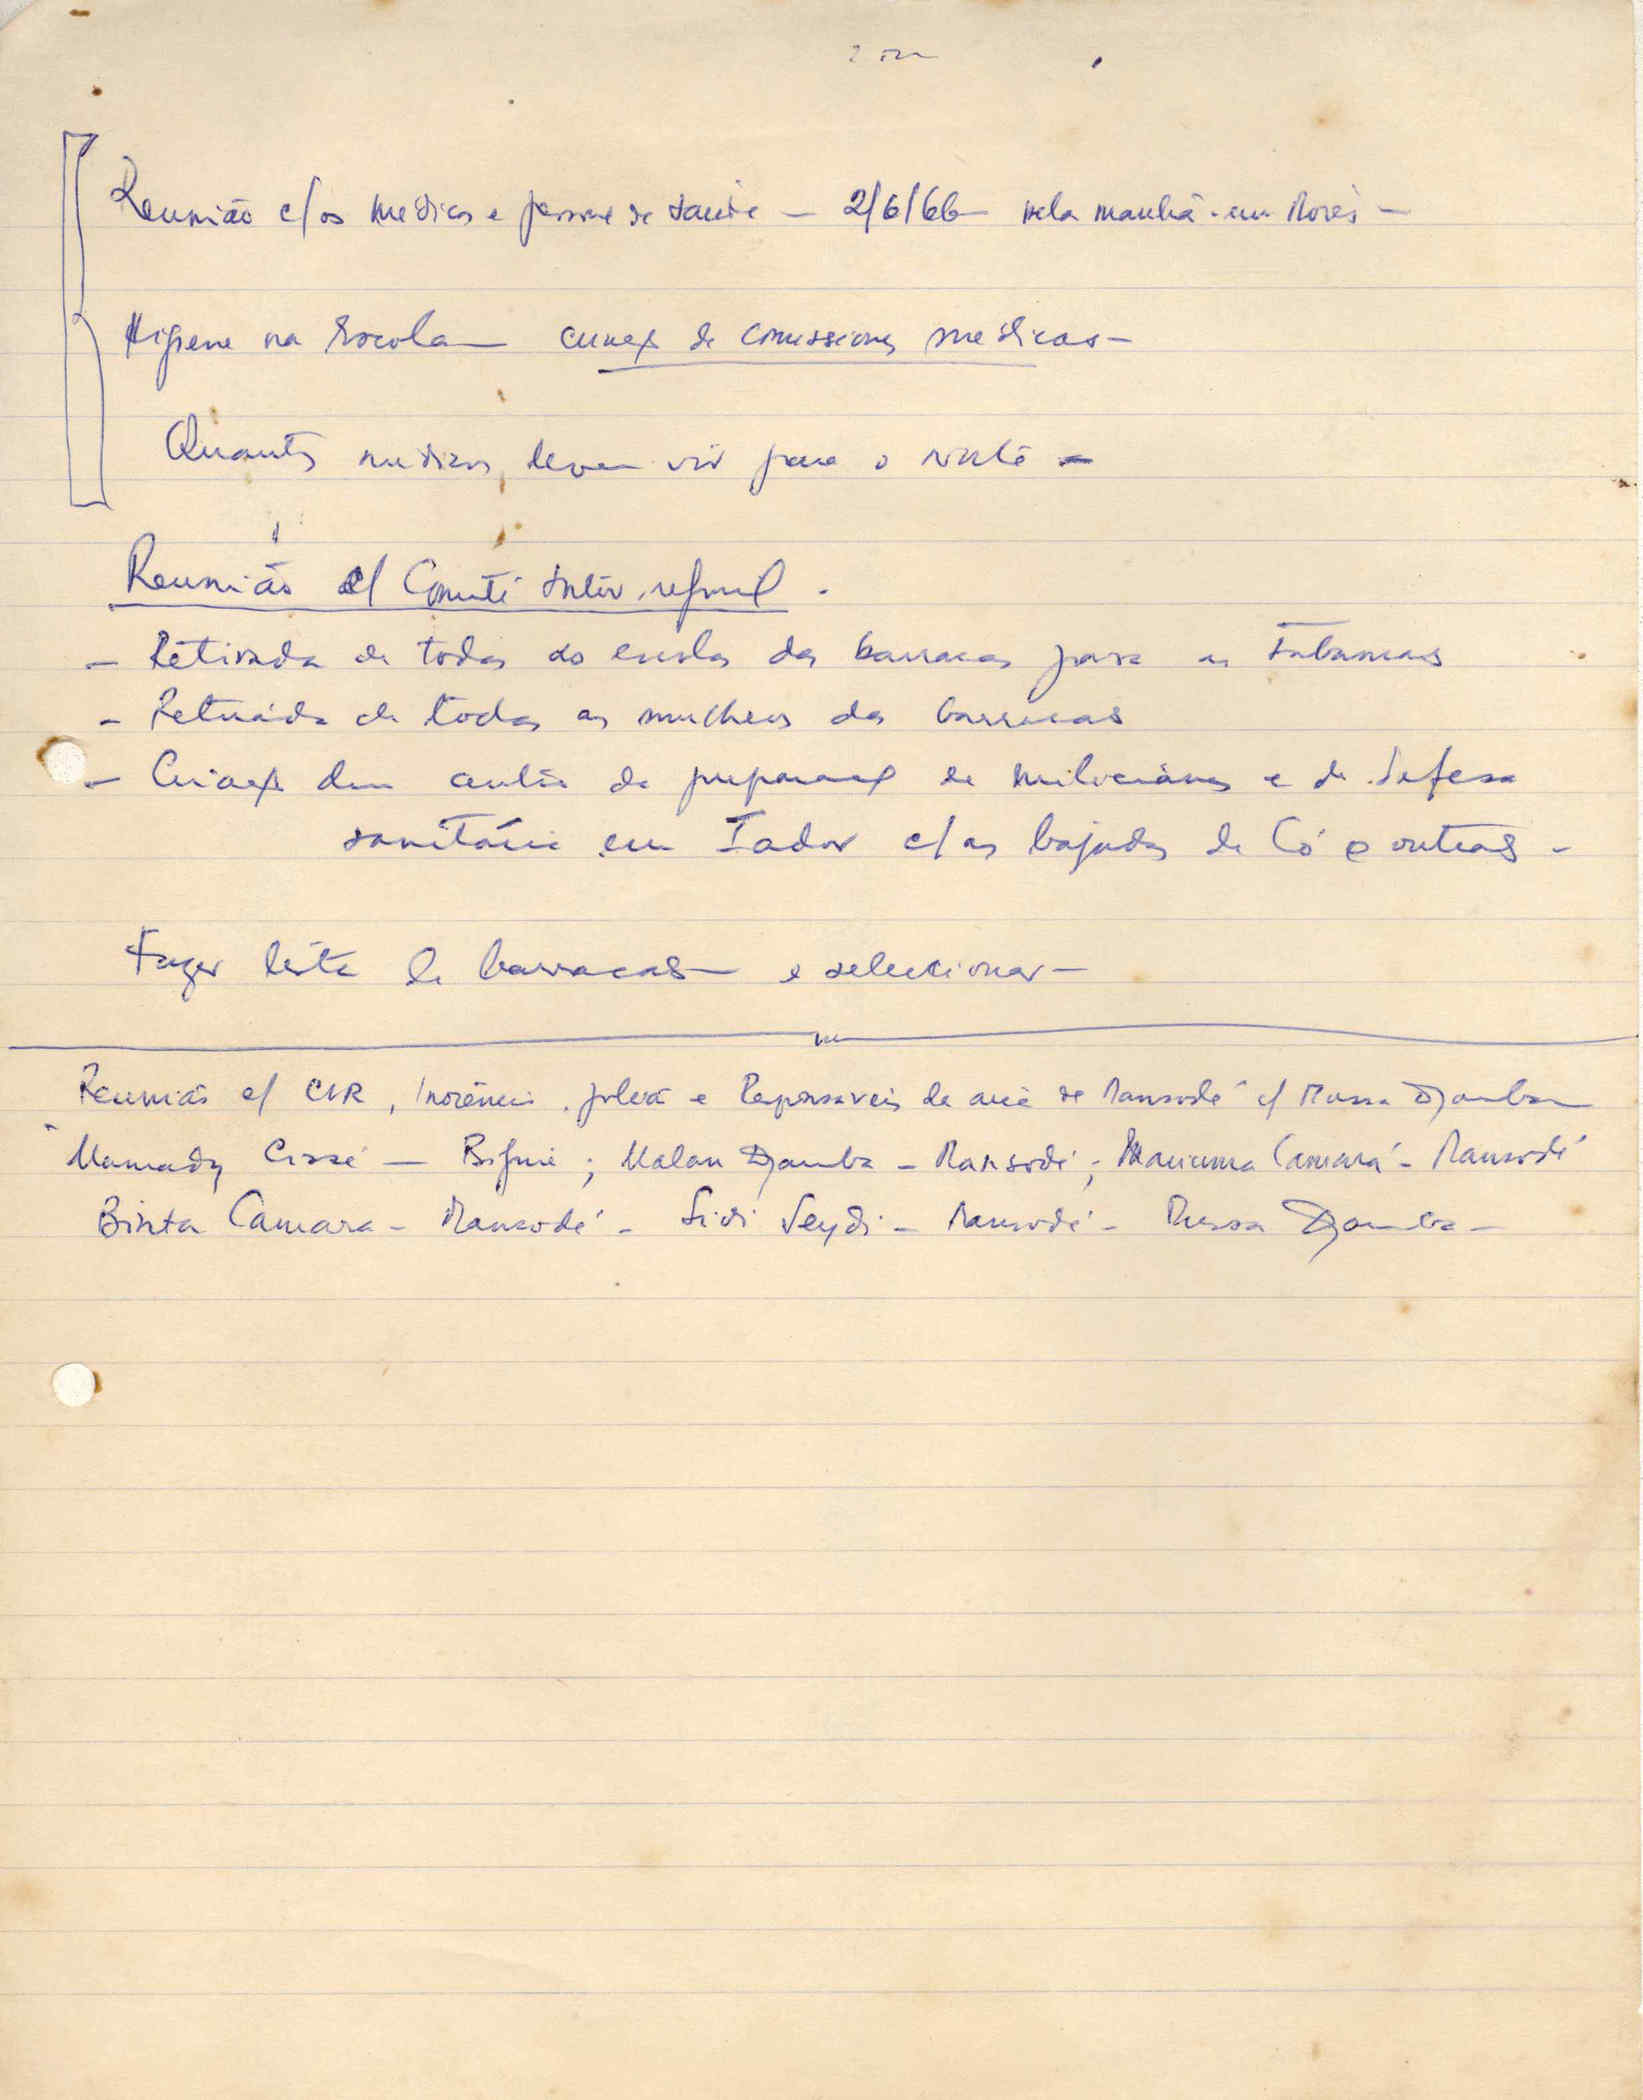 Reunião c/os medicos e pessoal de saude — 2/6/66 — pela manhã - em Morés —
Higiene na Escola — de comissiones medicas —
Quantos medicos devem vir para o norte —
Reunião c/ Comité Inter. regional .
— Retirada de todas as escolas das barracas para as tabancas
— Retirada de todas as mulheres das barracas
— Criação dum centro de preparação de milicianos e de defesa
sanitária em Iador c/as bajudas de Có e outras —
Fazer lista de barracas — e selecionar —
Reunião c/ CIR, Inocêncio, e Responsaveis da area de Mansodé c/ Mussa Djamba —
Mamady Cissé — ; Malan Djamba — Mansodé ; Mariama Camará - Mansodé
Binta Camara - Mansodé - Sidi Seydi — Mansodé - Mussa Djamba —